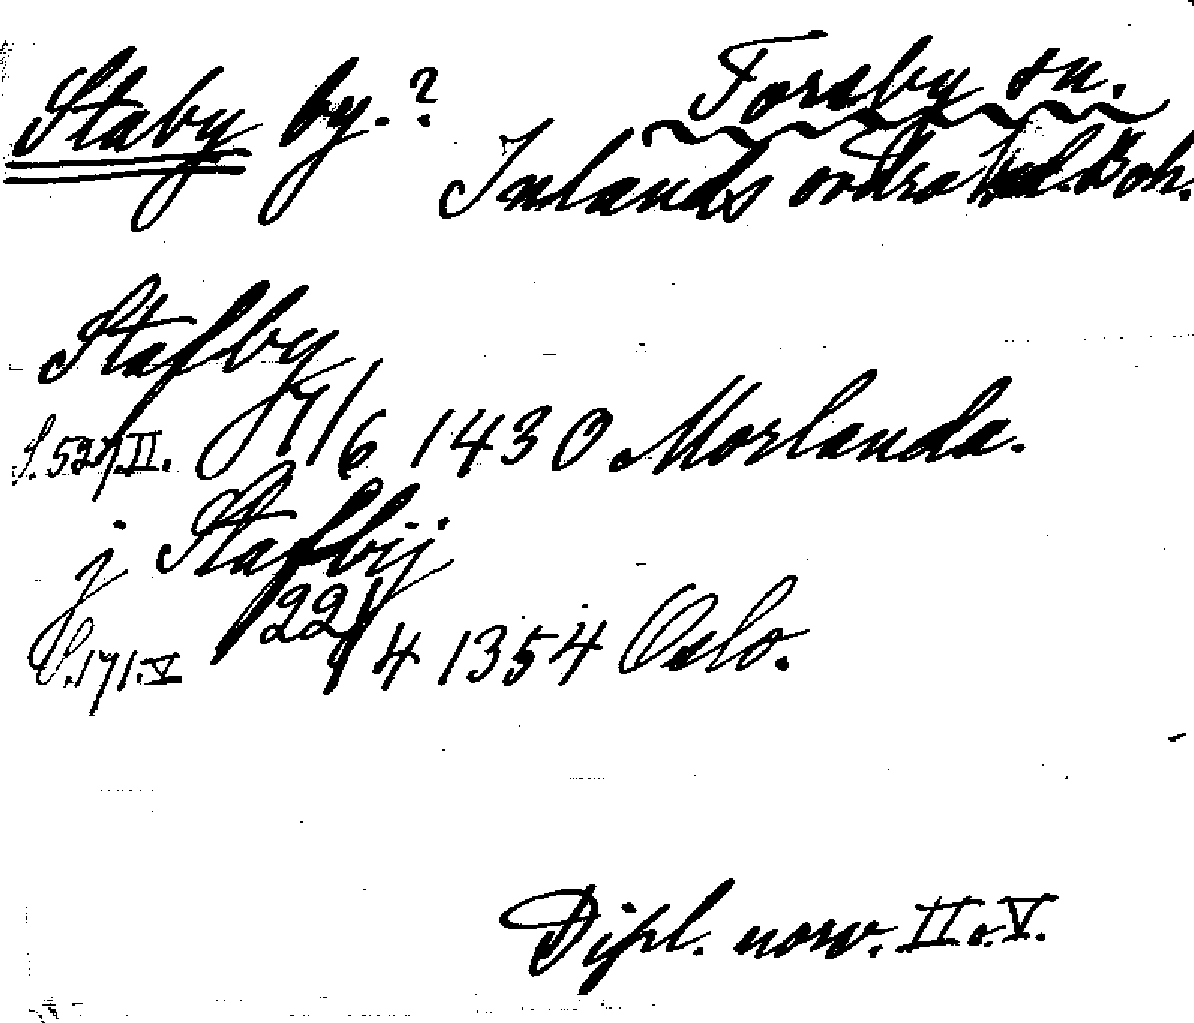 Staby by.? Forsby sn.
Inlands södra hd. Boh.
Stafby
S. 527.II. 7/6 1430 Morlanda.
j Stafbij
S. 171.V 22/4 1354 Oslo.
Dipl. norv. II o. V.